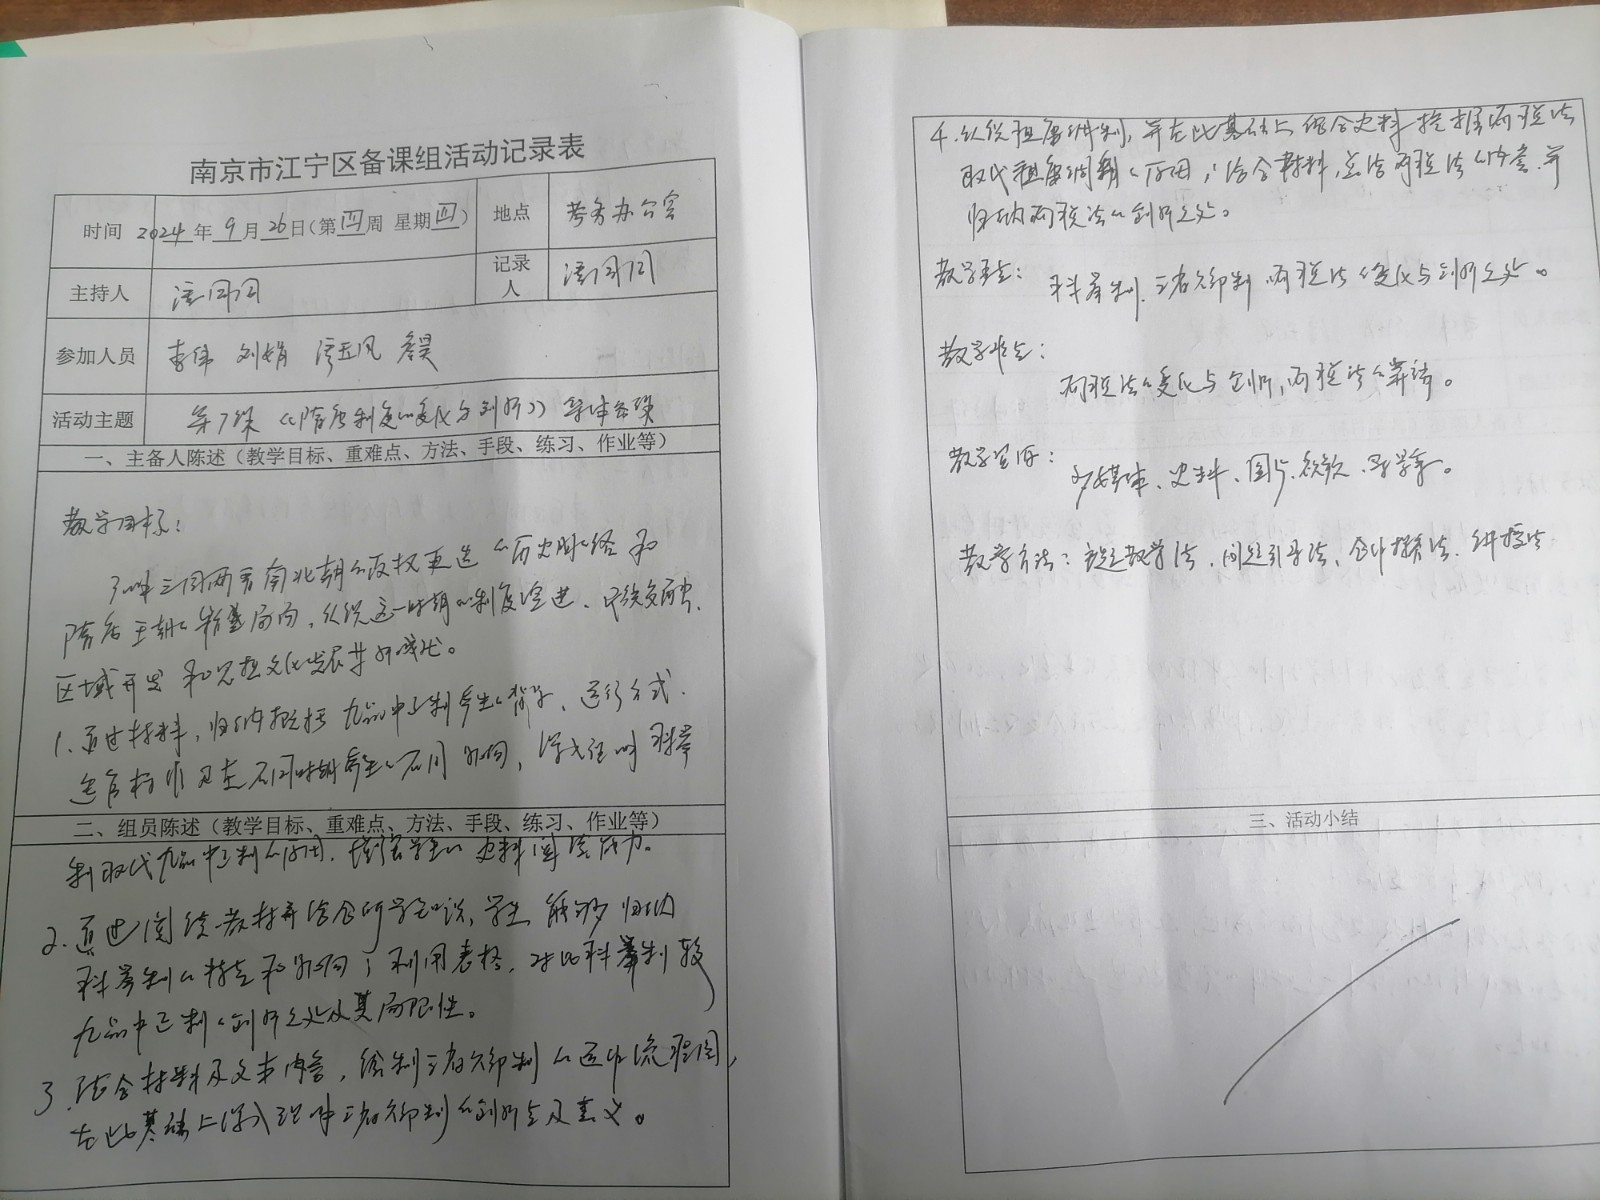 南京市江宁区备课组活动记录表
时间 2024年9月26日(第四周 星期四) 地点 考务办公室
主持人 记录人
参加人员 李伟 刘娟
活动主题 第7课《隋唐制度的变化与创新》集体备课
一、主备人陈述（教学目标、重难点、方法、手段、练习、作业等）
教学目标：
了解三国两晋南北朝的政权更迭的历史脉络和
隋唐王朝的新局面，认识这一时期的制度演进、民族交融、
区域开发和思想文化发展等新成就。
1.通过材料，归纳概括九品中正制产生的背景、运行方式、
选官标准及在不同时期产生的不同影响，深入理解科举
二、组员陈述（教学目标、重难点、方法、手段、练习、作业等）
制取代九品中正制的原因，增强学生的史料阅读能力。
2.通过阅读教材并结合所学知识，学生能够归纳
科举制的特点和影响；利用表格，对比科举制较
九品中正制的创新之处及其局限性。
3.结合材料及文本内容，绘制三省六部制的运作流程图，
在此基础上深入理解三省六部制的创新点及意义。
4.认识租庸调制，并在此基础上结合史料掌握两税法
取代租庸调制的原因；结合材料，总结两税法的内容，并
归纳两税法的创新之处。
教学重点：
科举制、三省六部制、两税法的变化与创新之处。
教学难点：
两税法的变化与创新，两税法的
教学资源：
多媒体、史料、图片、视频、导学案。
教学方法： 教学法、问题引导法、合作探究法、讲授法
三、活动小结